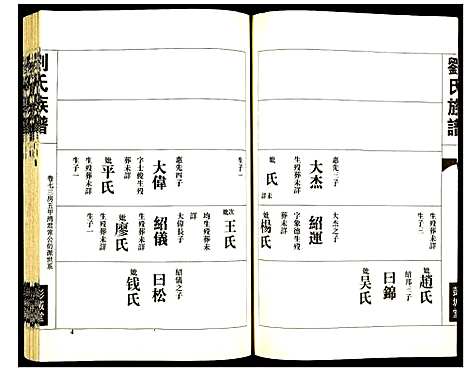 劉氏族譜
彭城堂
惠先三子
大杰
妣
氏
生子二
生歿葬未詳
大杰之子
紹運
字象德生歿
葬未詳
妣楊氏
妣趙氏
紹邦三子
曰錦
妣吴氏
惠先四子
大偉
字士俊生歿
葬未詳
妣平氏
生歿葬未詳
生子一
次妣王氏
均生歿葬未
詳
大偉長子
紹儀
生歿葬未詳
妣廖氏
生歿葬未詳
生子一
紹儀之子
曰松
妣钱氏
劉氏族譜
卷七三房五甲
世系
彭城堂
4